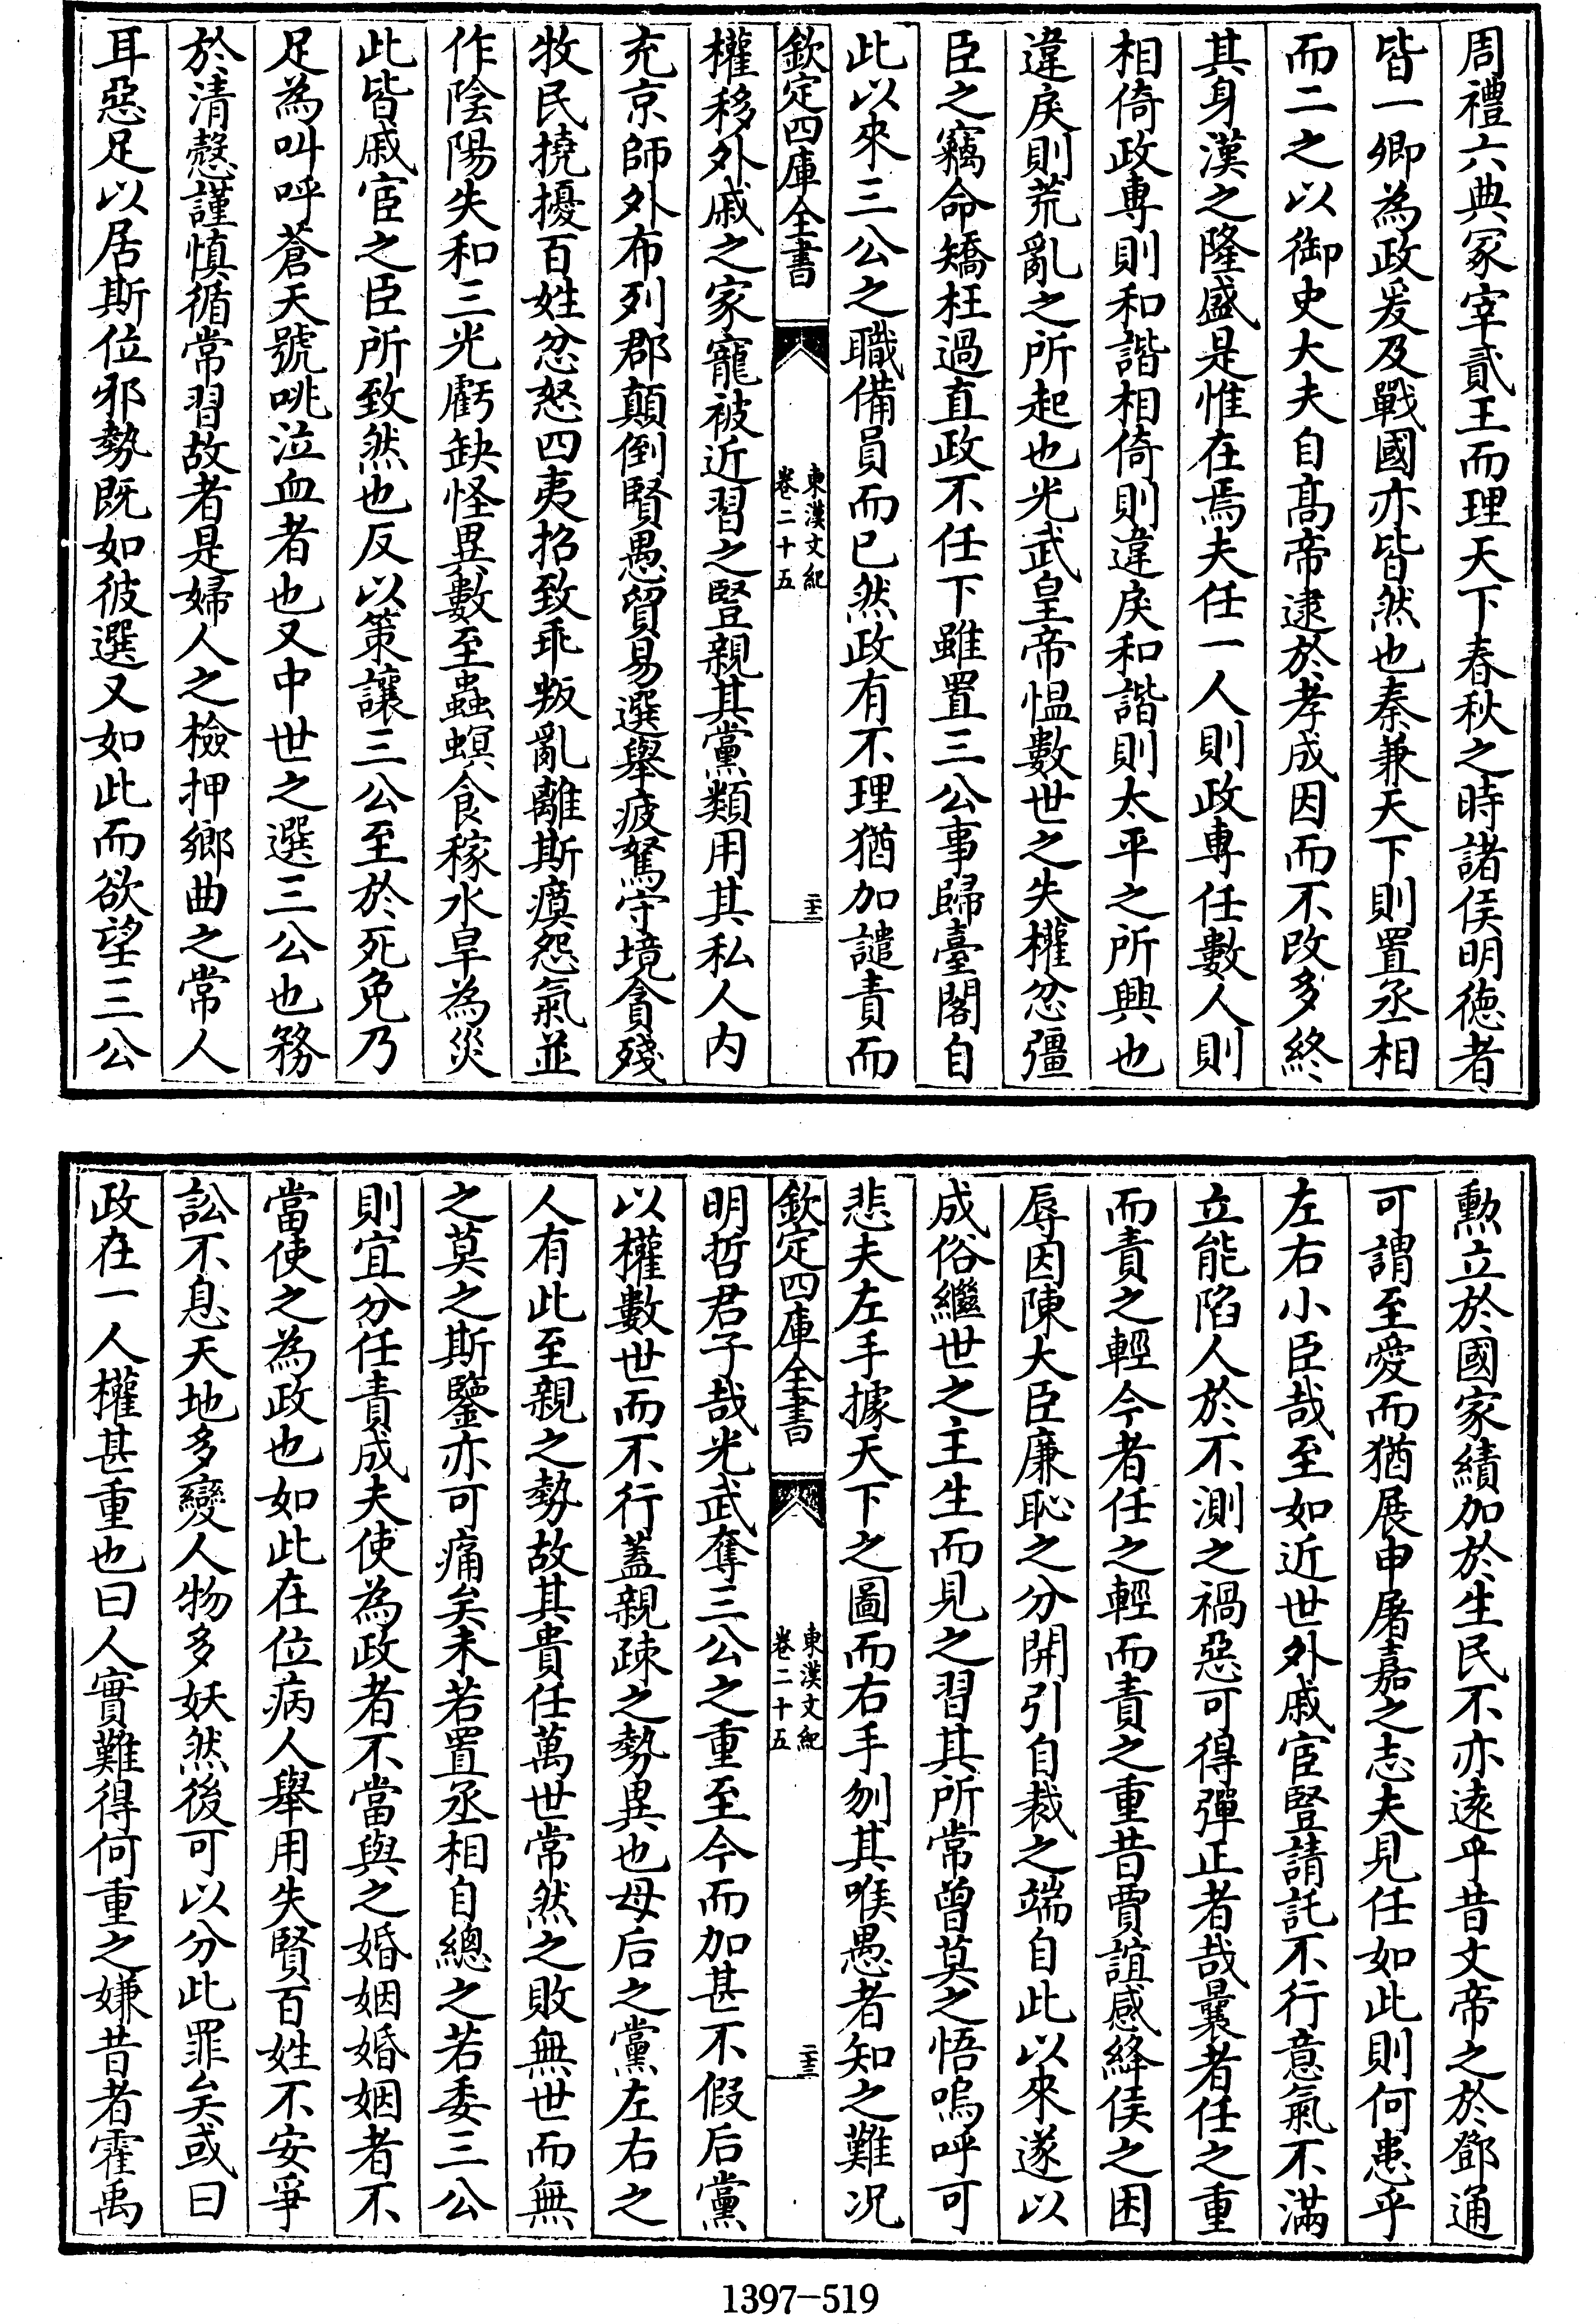 周禮六典冢宰貳王而理天下春秋之時諸侯明徳者
皆一卿為政爰及戰國亦皆然也秦兼天下則置丞相
而二之以御史大夫自髙帝逮於孝成因而不改多終
其身漢之隆盛是惟在焉夫任一人則政専任數人則
相倚政専則和諧相倚則違戾和諧則太平之所興也
違戾則荒亂之所起也光武皇帝愠數世之失權忿彊
臣之竊命矯枉過直政不任下雖置三公事歸臺閣自
此以來三公之職備員而已然政有不理猶加譴責而
欽定四庫全書
東漢文紀
卷二十五
二十二
權移外戚之家寵被近習之豎親其黨類用其私人内
充京師外布列郡顛倒賢愚貿易選舉疲駑守境貪殘
牧民撓擾百姓忿怒四夷招致乖叛亂離斯瘼怨氣並
作陰陽失和三光虧缺怪異數至蟲螟食稼水旱為災
此皆戚宦之臣所致然也反以策讓三公至於死免乃
足為叫呼蒼天號咷泣血者也又中世之選三公也務
於清慤謹慎循常習故者是婦人之檢押鄉曲之常人
耳惡足以居斯位邪勢既如彼選又如此而欲望三公
勲立於國家績加於生民不亦遠乎昔文帝之於鄧通
可謂至愛而猶展申屠嘉之志夫見任如此則何患乎
左右小臣哉至如近世外戚宦豎請託不行意氣不滿
立能陷人於不測之禍惡可得彈正者哉曩者任之重
而責之輕今者任之輕而責之重昔賈誼感絳侯之困
辱因陳大臣廉恥之分開引自裁之端自此以來遂以
成俗繼世之主生而見之習其所常曽莫之悟嗚呼可
悲夫左手據天下之圖而右手刎其喉愚者知之難况
欽定四庫全書
東漢文紀
卷二十五
二十三
明哲君子哉光武奪三公之重至今而加甚不假后黨
以權數世而不行蓋親疎之勢異也母后之黨左右之
人有此至親之勢故其貴任萬世常然之敗無世而無
之莫之斯鑒亦可痛矣未若置丞相自總之若委三公
則宜分任責成夫使為政者不當與之婚姻婚姻者不
當使之為政也如此在位病人舉用失賢百姓不安爭
訟不息天地多變人物多妖然後可以分此罪矣或曰
政在一人權甚重也曰人實難得何重之嫌昔者霍禹
1397-519